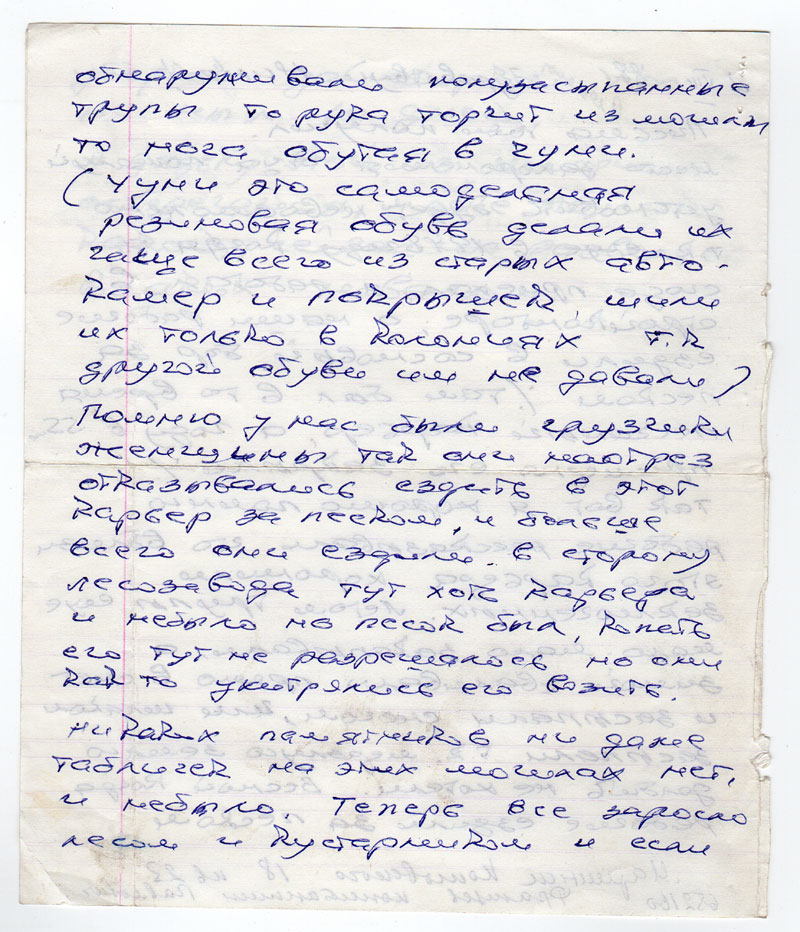 обнаруживали полузасыпанные
трупы то рука торчит из могилы
то нога обутая в чуни.
(Чуни это самодельная
резиновая обувь делали их
чаще всего из старых авто-
камер и покрышек, шили
их только в колониях т.к
другой обуви им не давали)
Помню у нас были грузчики
женщины так они наотрез
отказывались ездить в этот
карьер за песком, и больше
всего они ездили в сторону
лесозавода тут хоть карьера
и небыло но песок был, копать
его тут не разрешалось но они
как то ухитрялись его возить.
никаких памятников ни даже
табличек на этих могилах нет,
и небыло. Теперь все заросло
лесом и кустарником и если